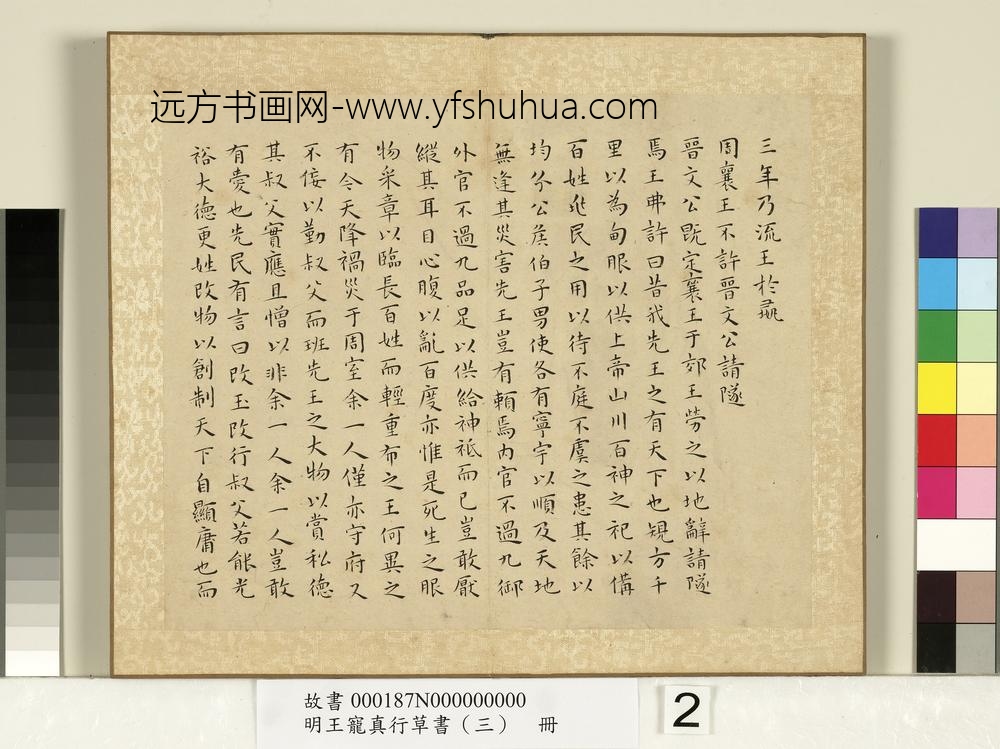 远方书画网-www.yfshuhua.com
三年乃流王於彘
周襄王不許晉文公請隧
晉文公既定襄王于郊王勞之以地辭請隧
焉王弗許曰昔我先王之有天下也規方千
里以為甸服以供上帝山川百神之祀以備
百姓兆民之用以待不庭不虞之患其餘以
均分公侯伯子男使各有寧宇以順及天地
無逢其災害先王豈有賴焉內官不過九御
外官不過九品足以供給神祗而已豈敢厭
縱其耳目心腹以亂百度亦惟是死生之服
物采章以臨長百姓而輕重布之王何異之
有今天降禍災于周室余一人僅亦守府又
不佞以勤叔父而班先王之大物以賞私德
其叔父實應且憎以非余一人余一人豈敢
有愛也先民有言曰改玉改行叔父若能光
裕大德更姓改物以創制天下自顯庸也而
故書 000187N000000000
明王寵真行草書（三） 冊
2